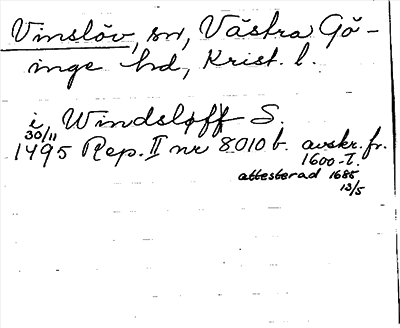 Vinslöv, sn, Västra Gö-
inge hd, Krist. l.
i Windsløff S.
30/11
1495 Rep. II nr 8010 b. avskr. fr.
1600-T.
attesterad 1685
13/5